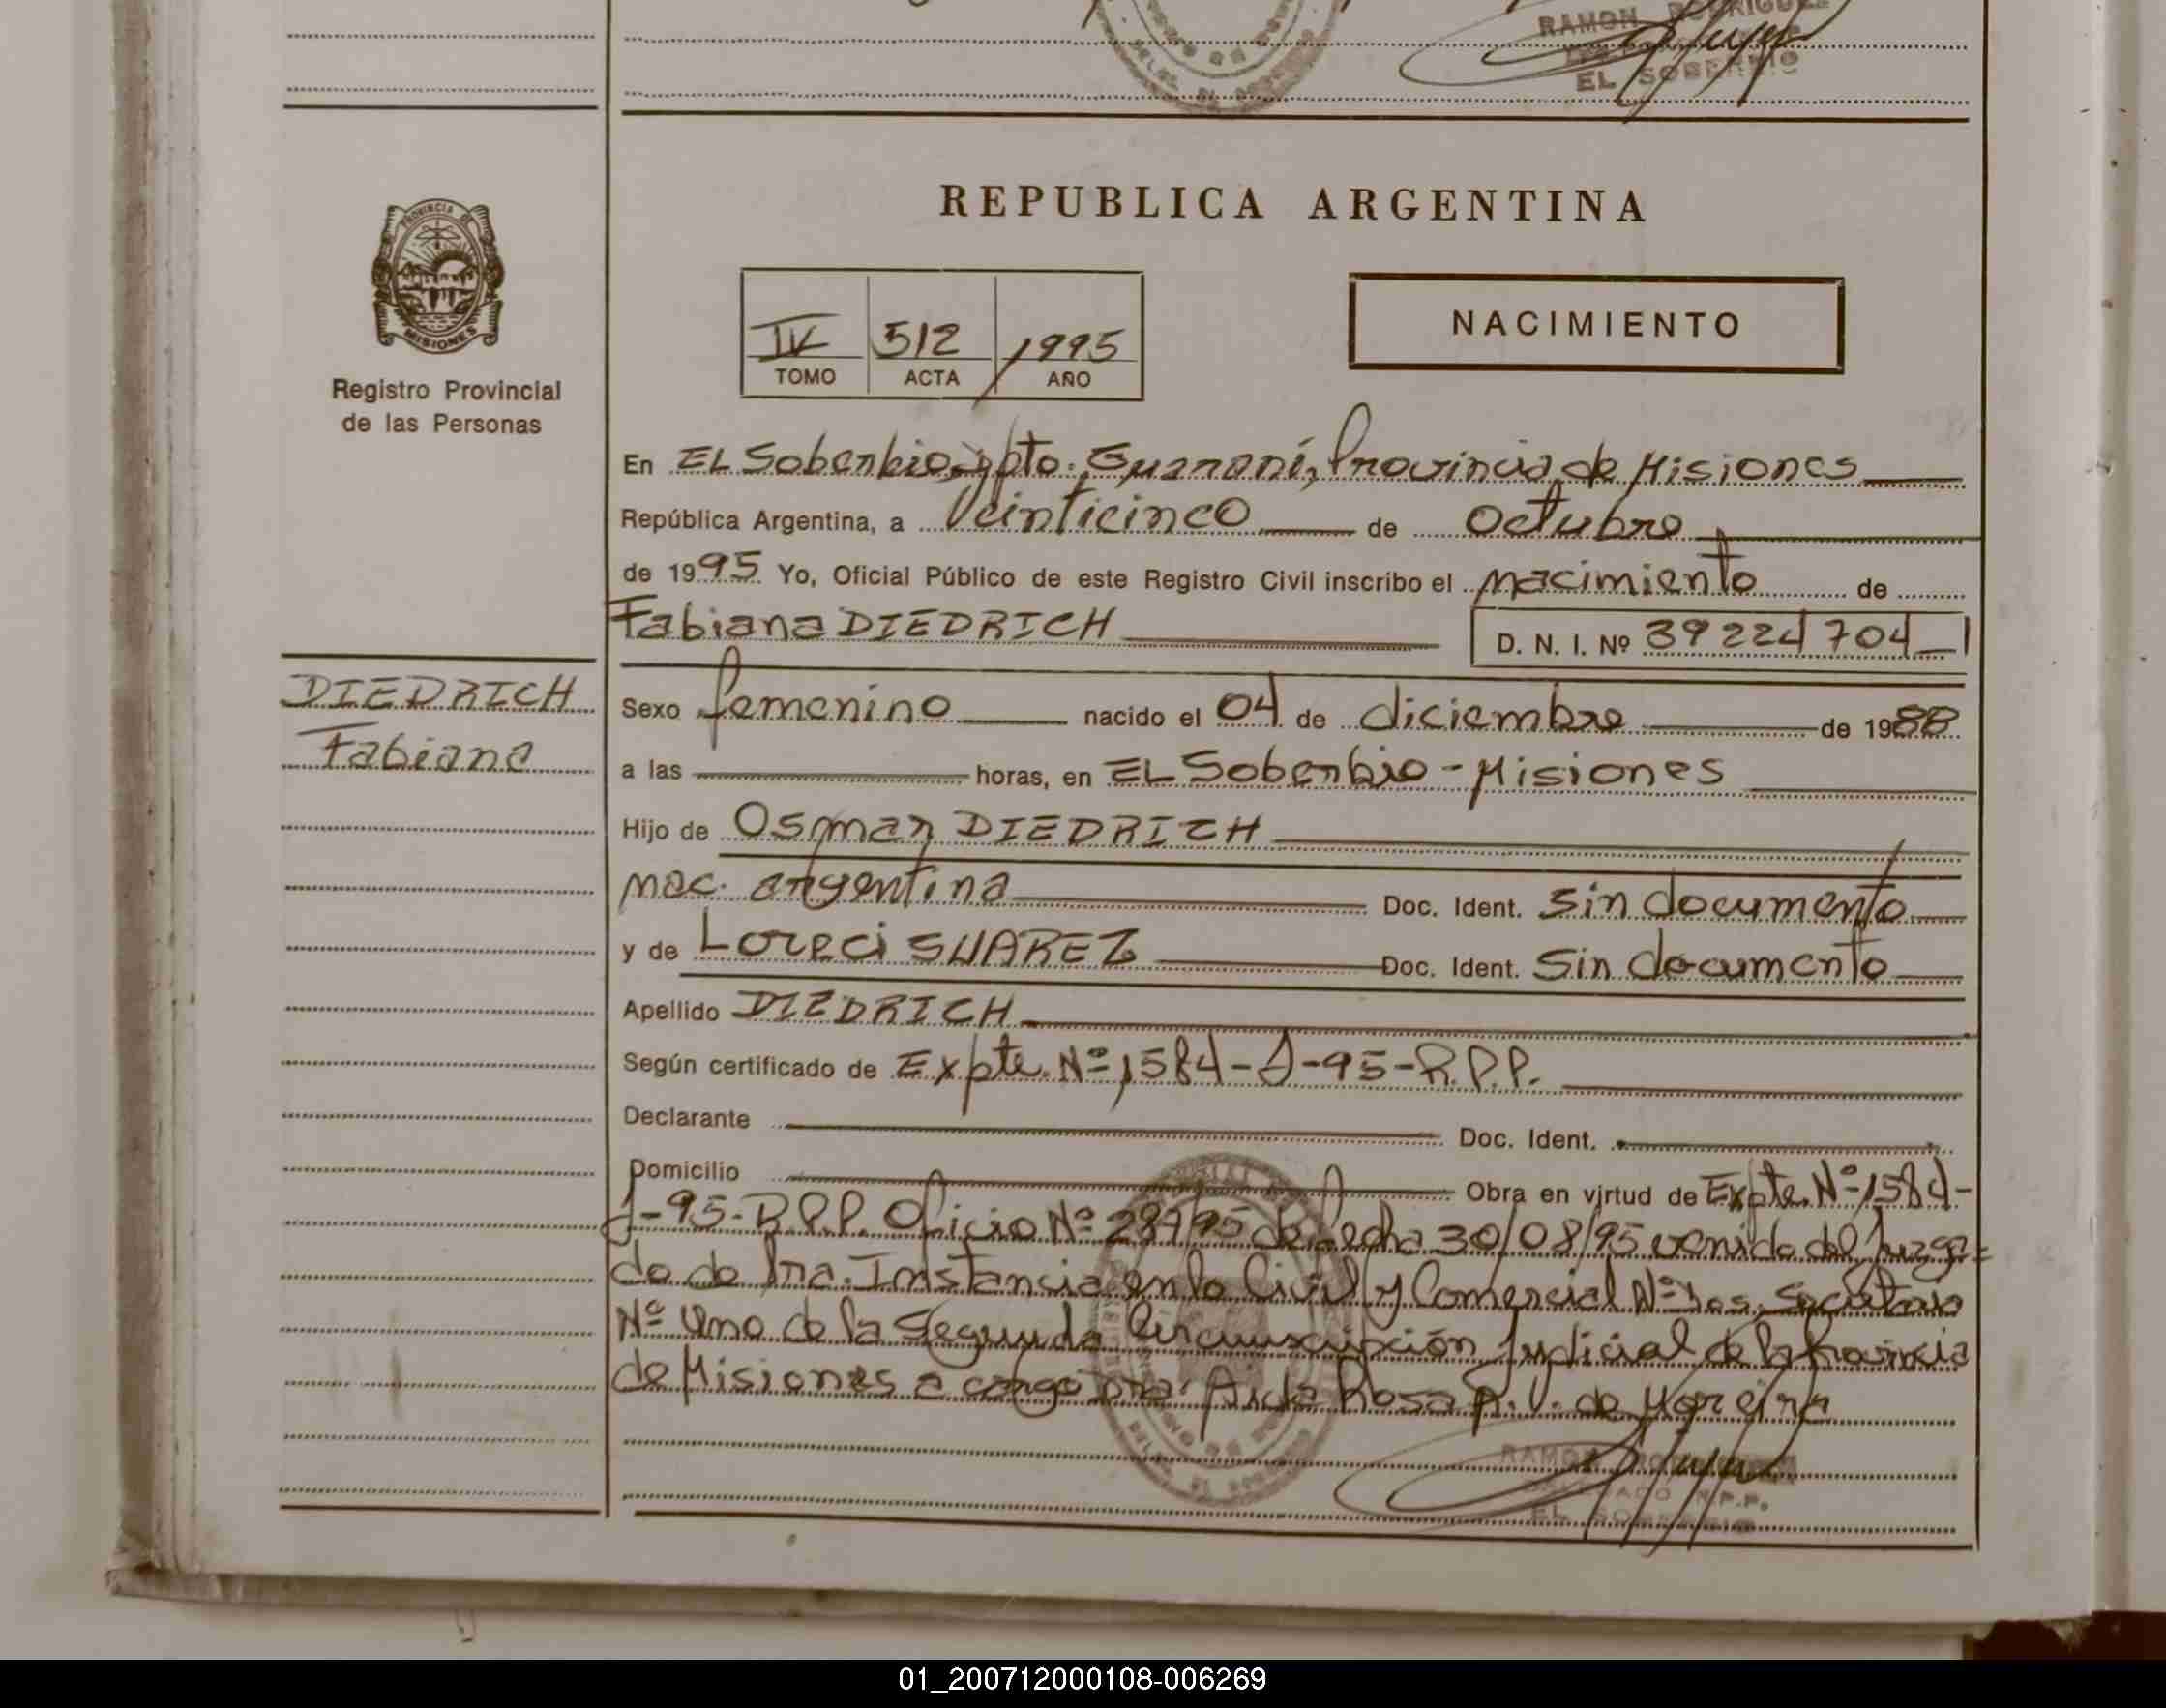 RAMON RODRIGUE
EL SOBERBIO
REPUBLICA ARGENTINA
PROVINCIA DE
MISIONES
Registro Provincial
de las Personas
IV 512 1995
TOMO ACTA AÑO
NACIMIENTO
En EL Soberbio, Dpto. Guaraní, Provincia de Misiones
República Argentina, a Veinticinco de Octubre
de 1995 Yo, Oficial Público de este Registro Civil inscribo el nacimiento de
Fabiana DIEDRICH D. N. I. Nº 39224704
DIEDRICH
Fabiana
Sexo femenino nacido el 04 de diciembre de 1988
a las horas, en EL Soberbio - Misiones
Hijo de Osmar DIEDRICH
nac. argentina Doc. Ident. Sin documento
y de Loreci SUAREZ Doc. Ident. Sin documento
Apellido DIEDRICH
Según certificado de Expte. Nº 1584-J-95-R.P.P.
Declarante Doc. Ident.
Domicilio Obra en virtud de Expte. Nº 1584-
J-95-R.P.P. Oficio Nº 287/95 de fecha 30/08/95 venido del Juzga=
do de 1ra. Instancia en lo Civil y Comercial Nº Dos, Secretaria
Nº Uno de la Segunda Circunscripción Judicial de la Provincia
de Misiones a cargo Dra. Aida Rosa A. V. de Moreira
RAMON
R.P.P.
EL SOBERBIO
01_200712000108-006269